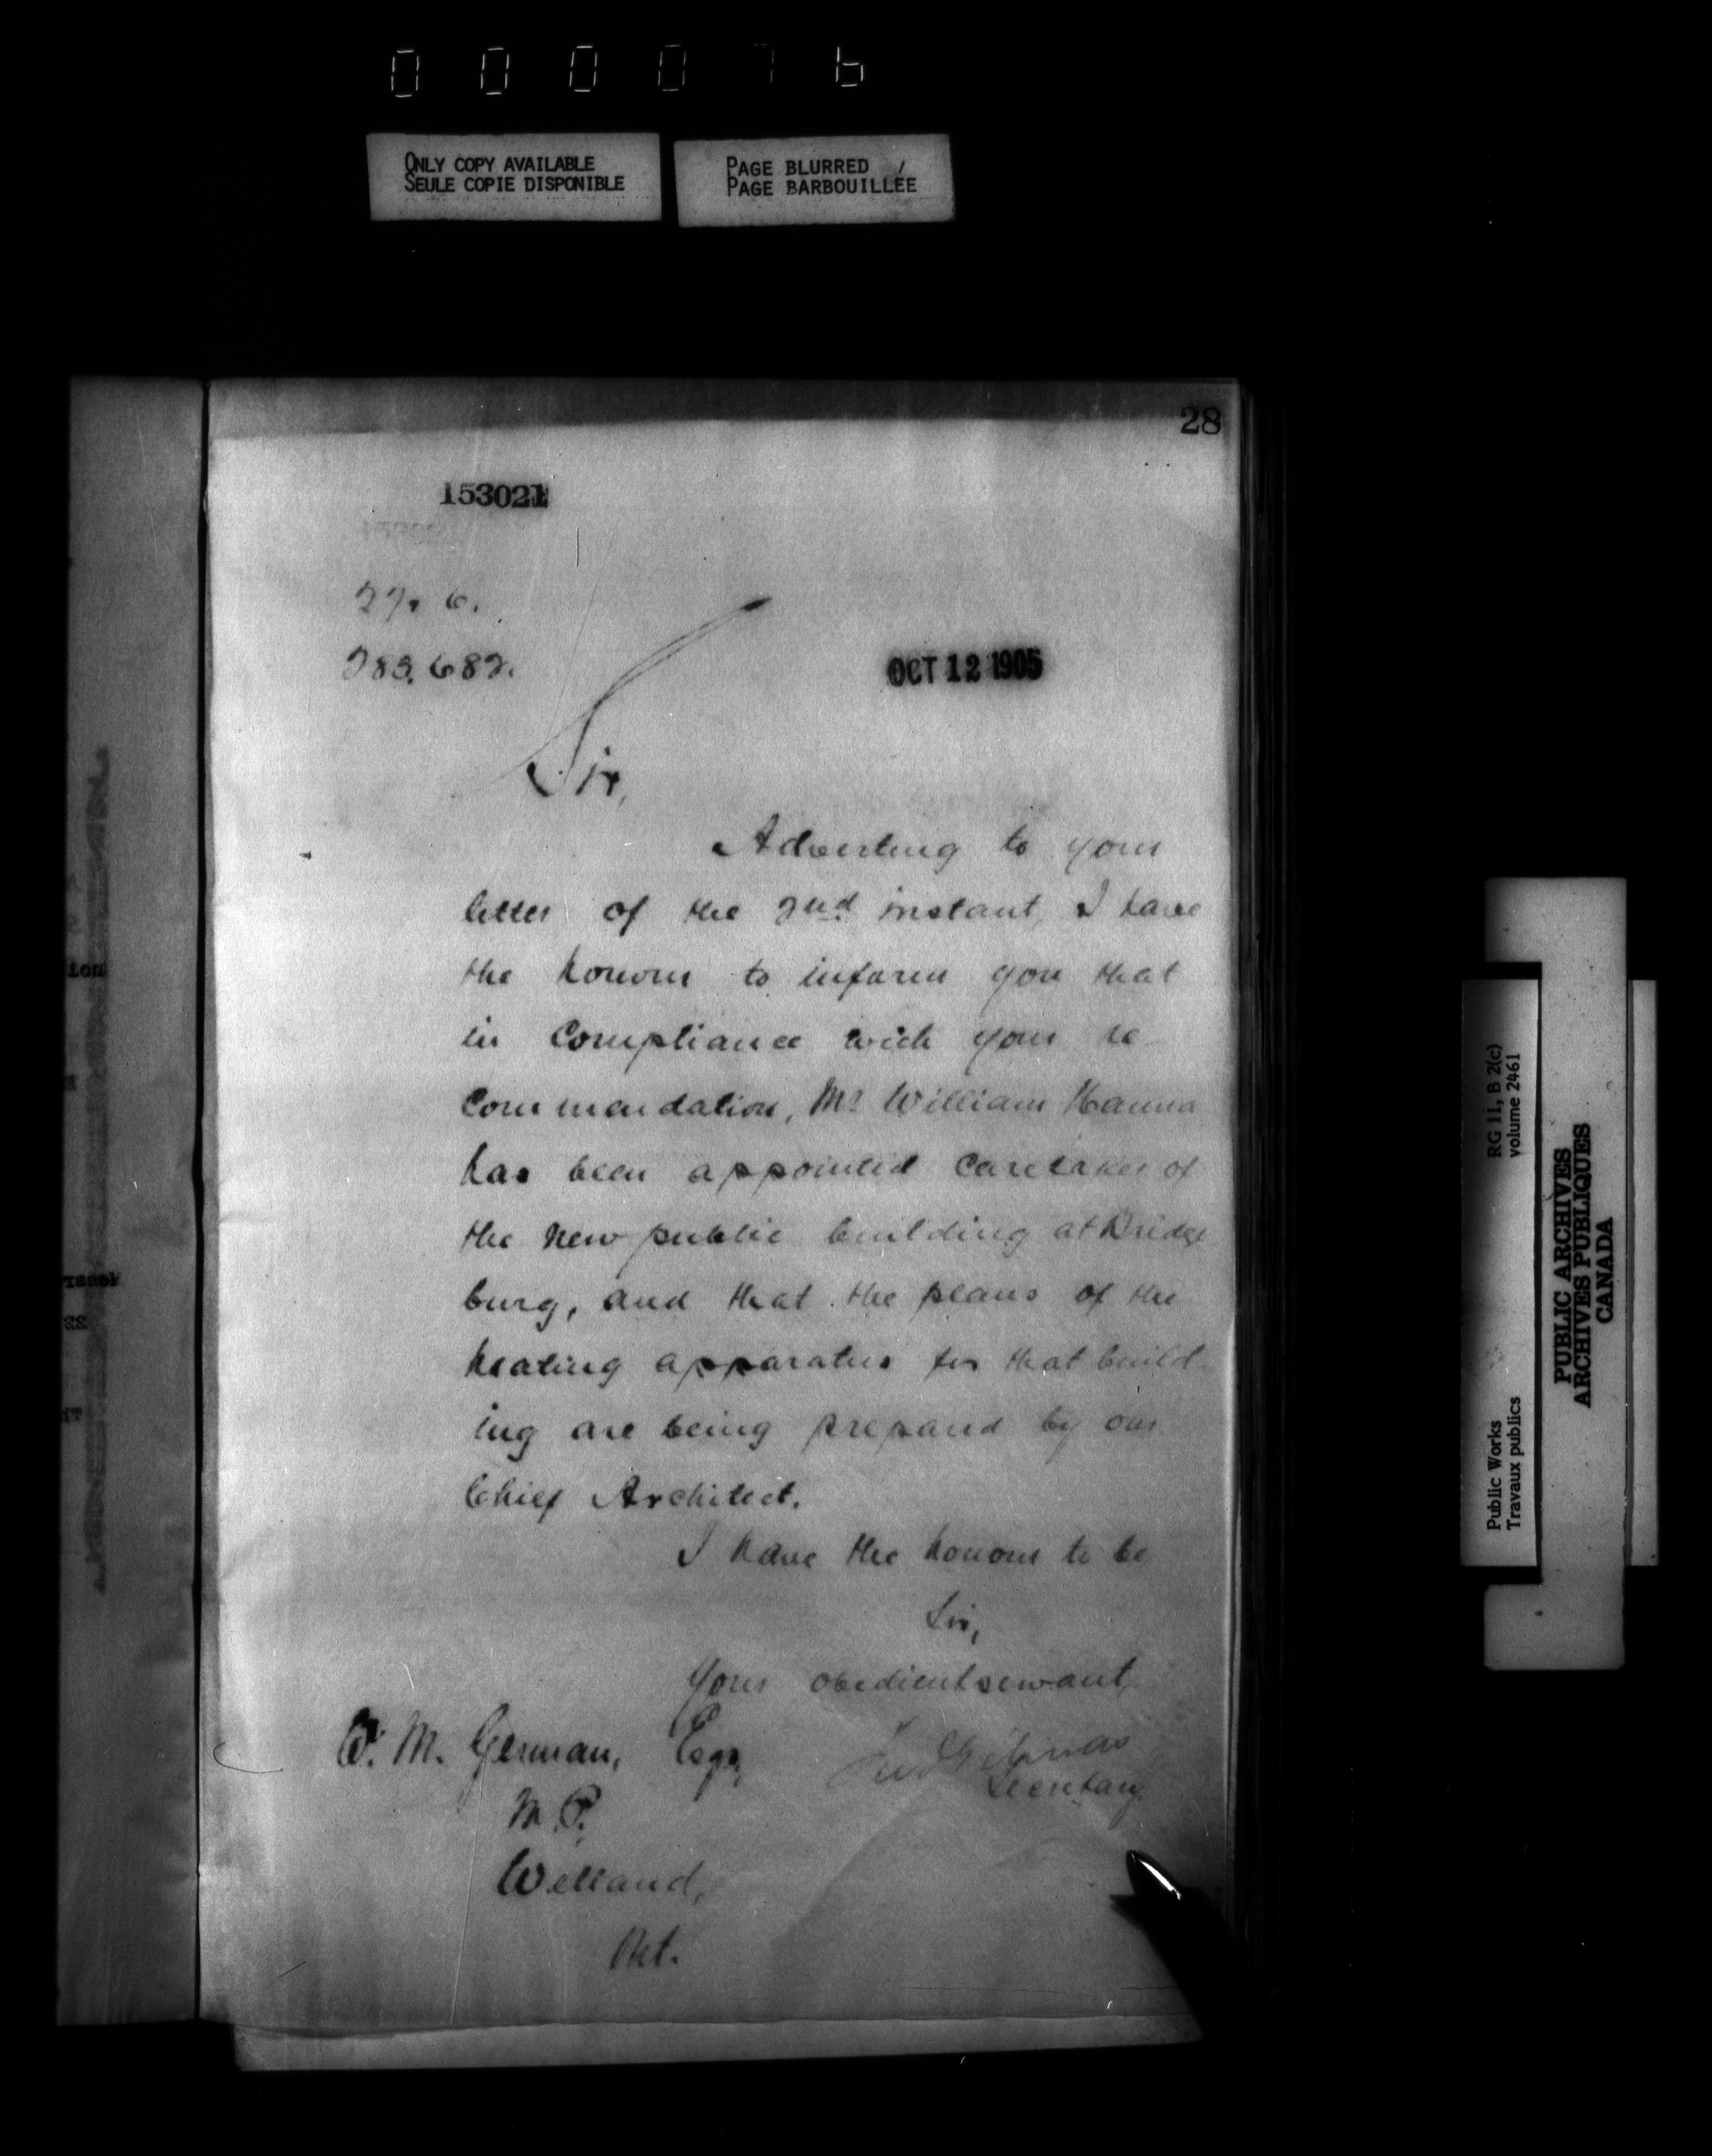 0 0 0 0 7 6
ONLY COPY AVAILABLE
SEULE COPIE DISPONIBLE
PAGE BLURRED /
PAGE BARBOUILLÉE
28
153021
27. 6.
283.682.
OCT 12 1905
Sir,
Adverting to your
letter of the 2nd instant, I have
the honour to inform you that
in compliance with your re-
commendation, Mr William Hanna
has been appointed caretaker of
the new public building at Bridge
burg, and that the plans of the
heating apparatus for that build-
ing are being prepared by our
Chief Architect.
I have the honour to be
Sir,
Your obedient servant,
Secretary.
W. M. German, Esqr,
M.P.
Welland,
Ont.
RG 11, B 2(c)
volume 2461
Public Works
Travaux publics
PUBLIC ARCHIVES
ARCHIVES PUBLIQUES
CANADA